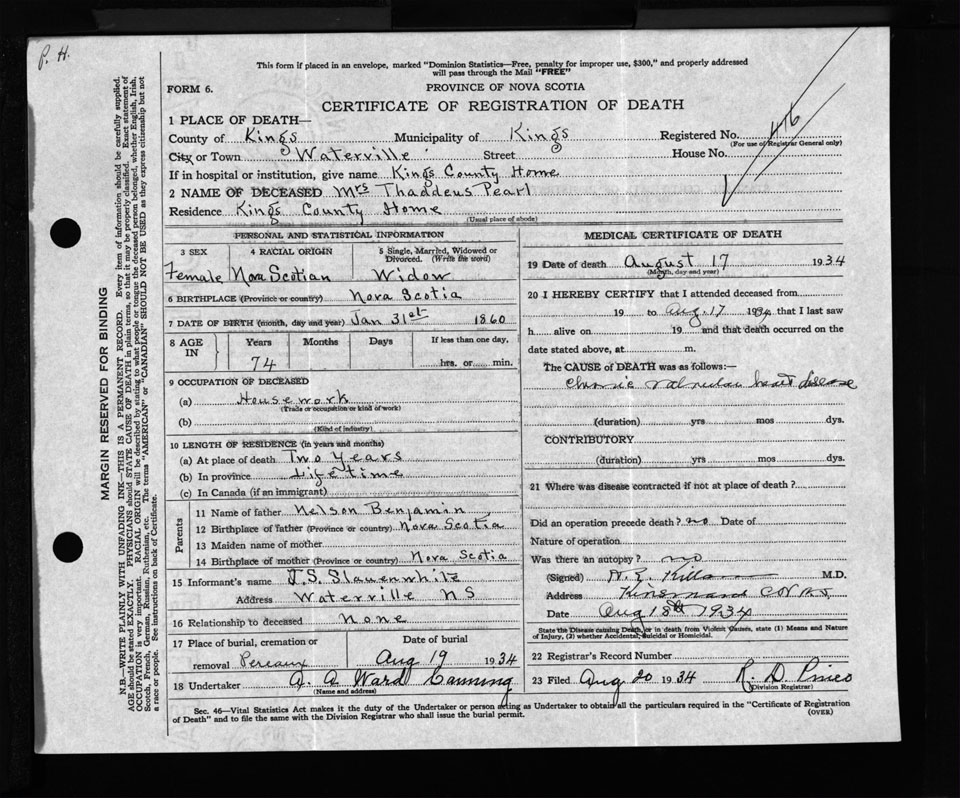 P. H.
This form if placed in an envelope, marked "Dominion Statistics—Free, penalty for improper use, $300," and properly addressed
will pass through the Mail "FREE"
FORM 6.
PROVINCE OF NOVA SCOTIA
CERTIFICATE OF REGISTRATION OF DEATH
1 PLACE OF DEATH—
County of Kings Municipality of Kings Registered No. 476
(For use of Registrar General only)
City or Town Waterville Street House No.
If in hospital or institution, give name Kings County Home
2 NAME OF DECEASED Mrs Thaddeus Pearl
Residence Kings County Home
(Usual place of abode)
PERSONAL AND STATISTICAL INFORMATION
3 SEX 4 RACIAL ORIGIN 5 Single, Married, Widowed or
Divorced. (Write the word)
Female Nova Scotian Widow
6 BIRTHPLACE (Province or country) Nova Scotia
7 DATE OF BIRTH (month, day and year) Jan 31st 1860
8 AGE IN Years Months Days If less than one day,
74 hrs. or min.
9 OCCUPATION OF DECEASED
(a) Housework
(Trade or occupation or kind of work)
(b)
(Kind of industry)
10 LENGTH OF RESIDENCE (in years and months)
(a) At place of death Two Years
(b) In province Life time
(c) In Canada (if an immigrant)
Parents
11 Name of father Nelson Benjamin
12 Birthplace of father (Province or country) Nova Scotia
13 Maiden name of mother
14 Birthplace of mother (Province or country) Nova Scotia
15 Informant's name J.S. Slauenwhite
Address Waterville NS
16 Relationship to deceased None
17 Place of burial, cremation or Date of burial
removal Pereaux Aug 19 1934
18 Undertaker A. A Ward Canning
(Name and address)
MEDICAL CERTIFICATE OF DEATH
19 Date of death August 17 1934
(Month, day and year)
20 I HEREBY CERTIFY that I attended deceased from
19 to Aug. 17 1934 that I last saw
h alive on 19 and that death occurred on
date stated above, at m.
The CAUSE OF DEATH was as follows:—
Chronic valvular heart disease
(duration) yrs mos dys.
CONTRIBUTORY
(duration) yrs mos dys.
21 Where was disease contracted if not at place of death?
Did an operation precede death? no Date of
Nature of operation
Was there an autopsy? no
(Signed) M.D.
Address
Date Aug 18th 1934
State the Disease causing Death, or in death from Violent Causes, state (1) Means and Nature
of Injury, (2) whether Accidental, Suicidal or Homicidal.
22 Registrar's Record Number
23 Filed Aug 20 1934 R. D. Pineo
(Division Registrar)
Sec. 46—Vital Statistics Act makes it the duty of the Undertaker or person acting as Undertaker to obtain all the particulars required in the "Certificate of Registration
of Death" and to file the same with the Division Registrar who shall issue the burial permit. (OVER)
MARGIN RESERVED FOR BINDING
N.B.—WRITE PLAINLY WITH UNFADING INK—THIS IS A PERMANENT RECORD. Every item of information should be carefully supplied.
AGE should be stated EXACTLY. PHYSICIANS should STATE CAUSE OF DEATH in plain terms, so that it may be properly classified. Exact statement of
OCCUPATION is very important. RACIAL ORIGIN will be described by stating to what people or tongue the deceased person belonged, whether English, Irish,
Scotch, French, German, Russian, Ruthenian, etc. The terms "AMERICAN" or "CANADIAN" SHOULD NOT BE USED as they express citizenship but not
a race or people. See instructions on back of Certificate.